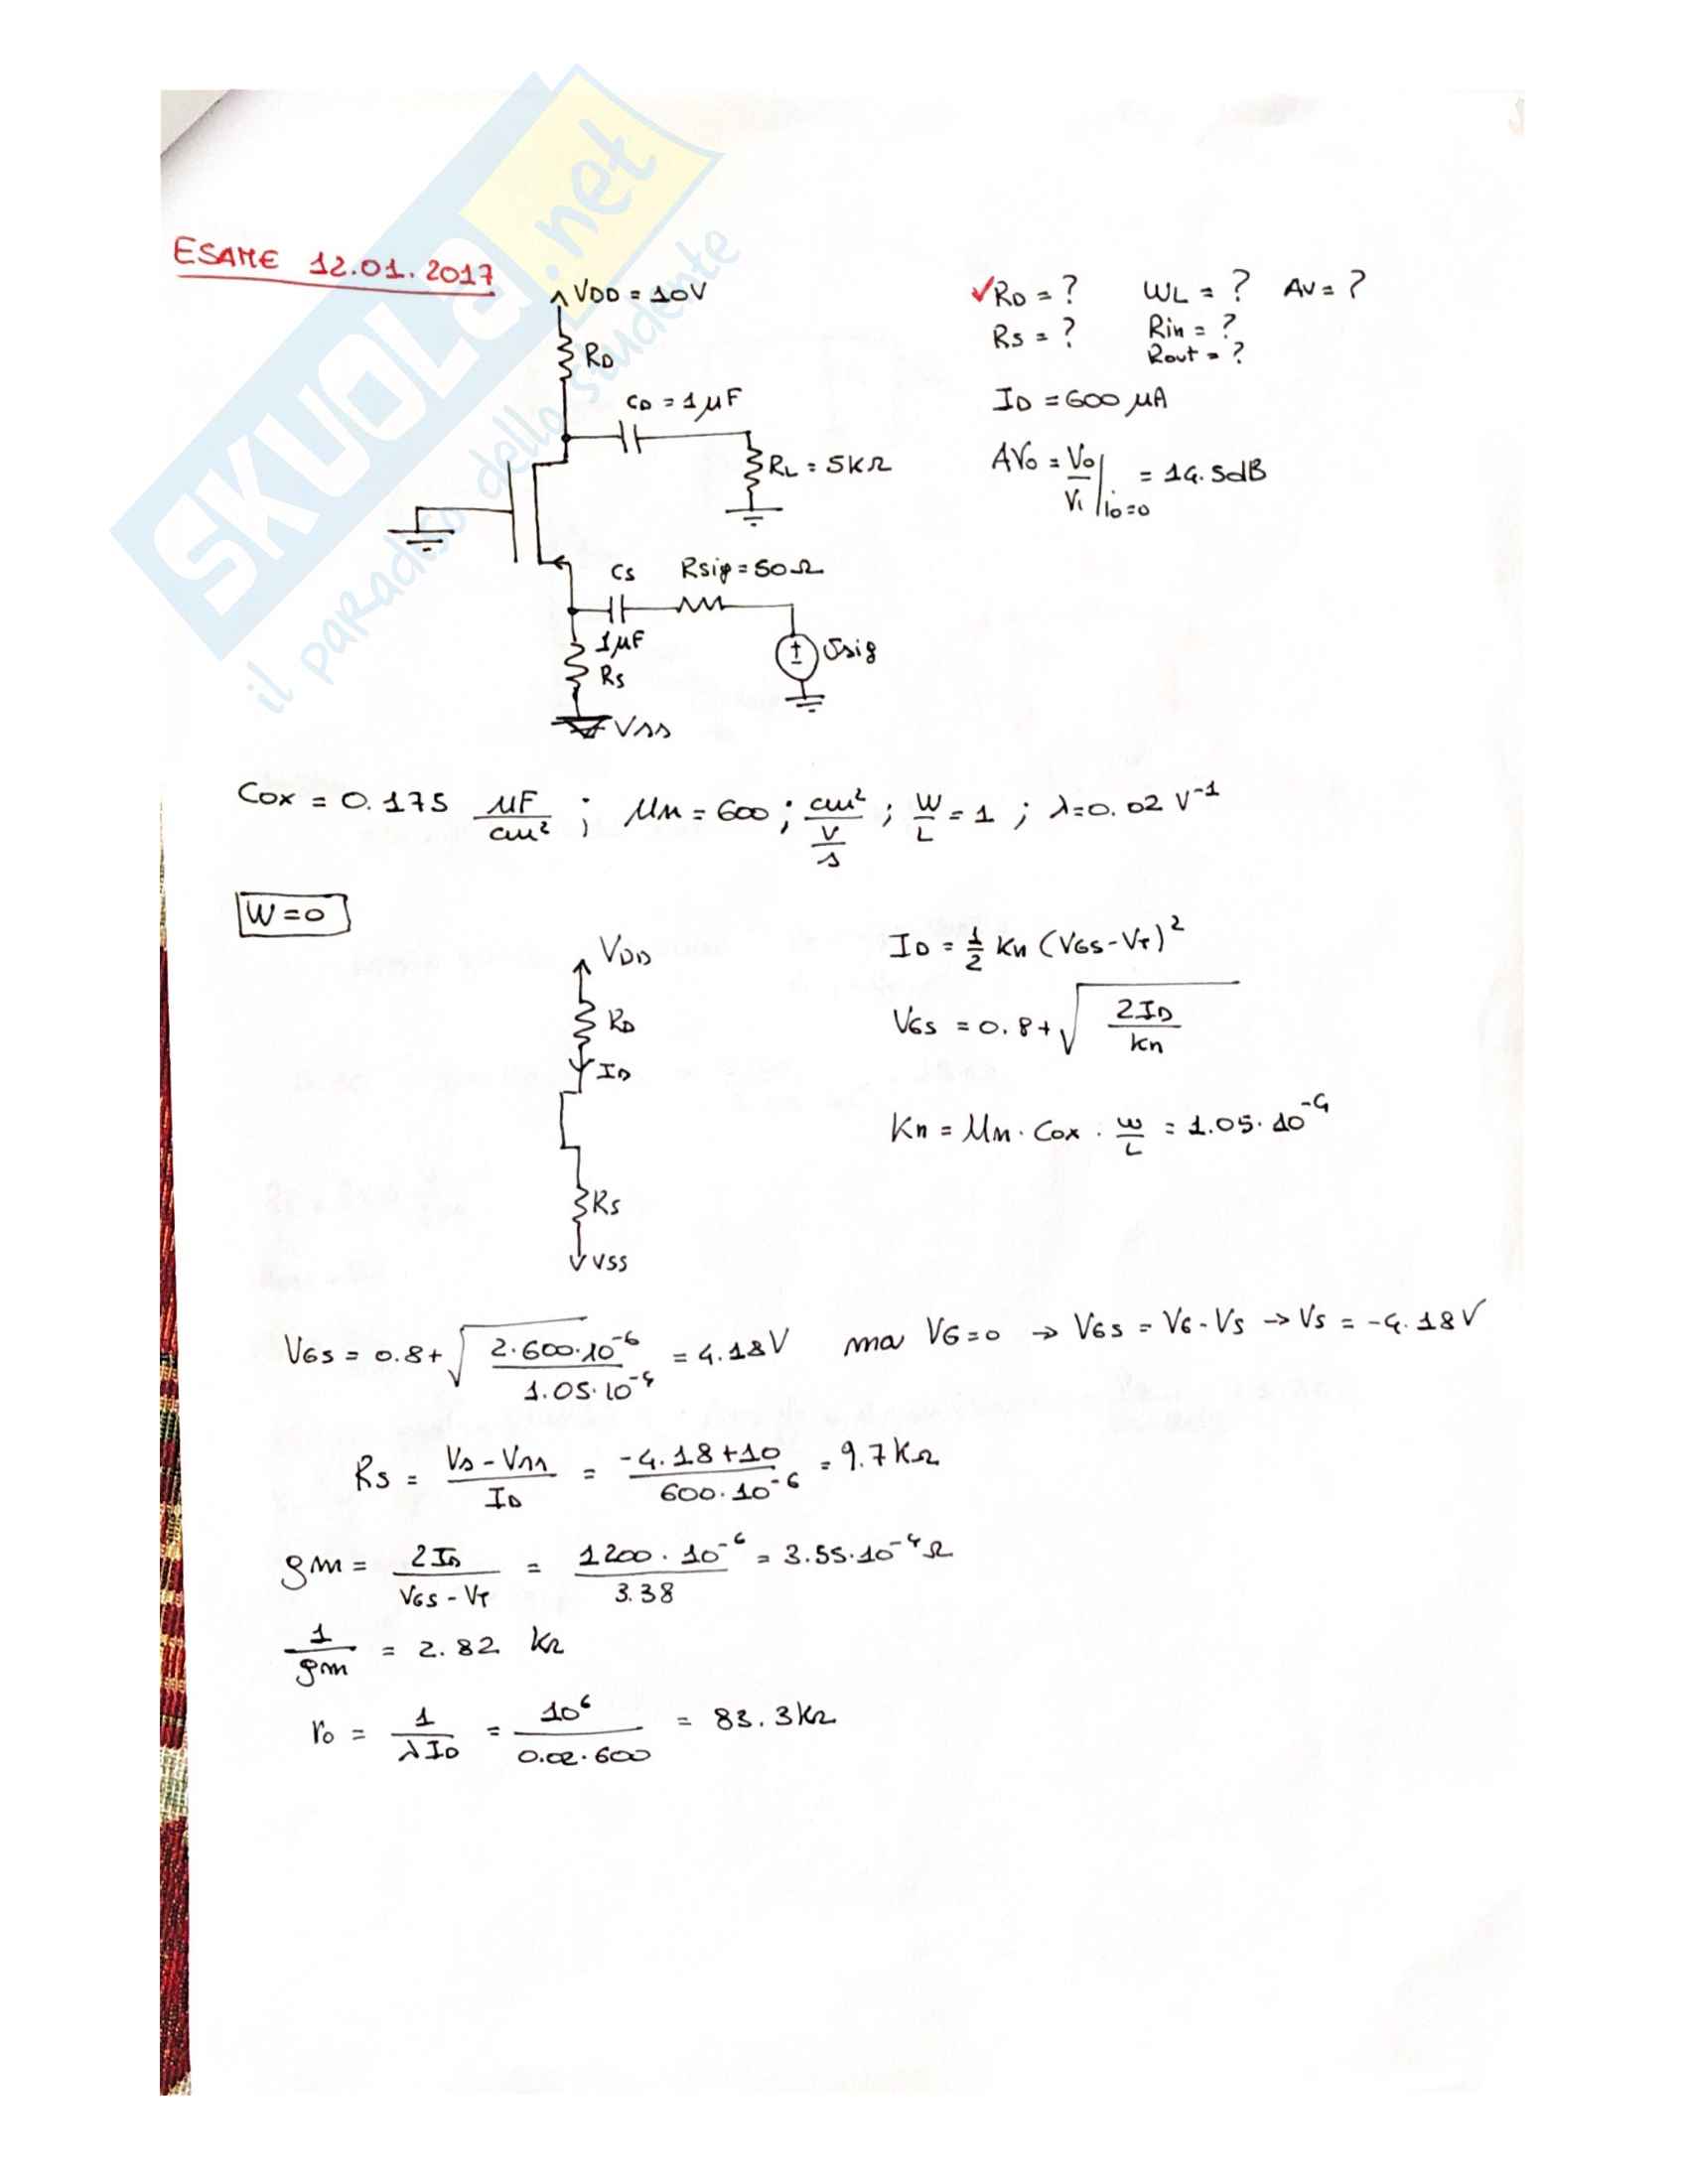 SKUOLA.net
il paradiso dello studente
ESAME 12.01.2017
VDD = 10V
RD
CD = 1 μF
RL = 5KΩ
Cs Rsig = 50Ω
1μF
Rs
Vsig
Vss
✓RD = ? WL = ? AV = ?
Rs = ? Rin = ?
Rout = ?
ID = 600 μA
AVo = Vo/Vi |io=0 = 14.5dB
Cox = 0.175 μF/cm² ; μn = 600 ; cm²/V/s ; W/L = 1 ; λ=0.02 V⁻¹
W=0
VDD
RD
ID
Rs
VSS
ID = 1/2 Kn (VGS-VT)²
VGS = 0.8+√(2ID/Kn)
Kn = μn · Cox · W/L = 1.05·10⁻⁴
VGS = 0.8+√(2·600·10⁻⁶/1.05·10⁻⁴) = 4.18V ma VG=0 → VGS = VG-VS → VS = -4.18V
Rs = Vs-Vss/ID = -4.18+10/600·10⁻⁶ = 9.7KΩ
gm = 2ID/VGS-VT = 1200·10⁻⁶/3.38 = 3.55·10⁻⁴Ω
1/gm = 2.82 KΩ
ro = 1/λID = 10⁶/0.02·600 = 83.3KΩ